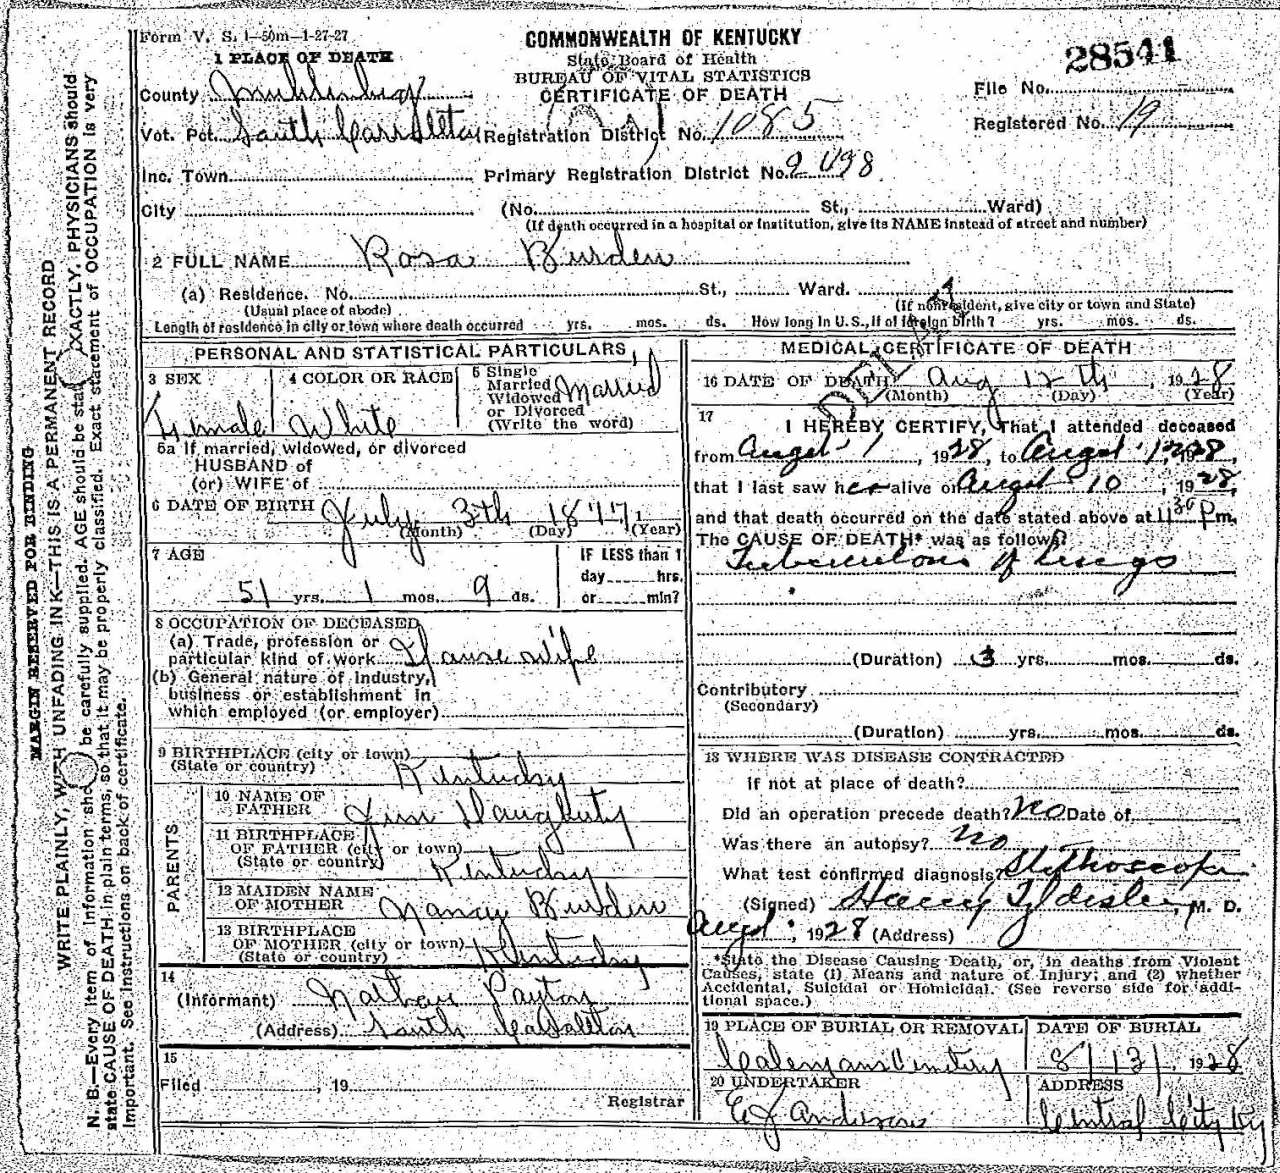 Form V. S. 1—50m—1-27-27
COMMONWEALTH OF KENTUCKY
State Board of Health
BUREAU OF VITAL STATISTICS
CERTIFICATE OF DEATH
28541
File No.
Registered No. 19
1 PLACE OF DEATH
County Muhlenberg
Vot. Pct. South Carrollton Registration District No. 1085
Inc. Town Primary Registration District No. 2498
City (No. St., Ward)
(If death occurred in a hospital or institution, give its NAME instead of street and number)
2 FULL NAME Rosa Burden
(a) Residence. No. St., Ward.
(Usual place of abode) (If nonresident, give city or town and State)
Length of residence in city or town where death occurred yrs. mos. ds. How long in U.S., if of foreign birth? yrs. mos. ds.
DELAYED
PERSONAL AND STATISTICAL PARTICULARS
3 SEX
Female
4 COLOR OR RACE
White
5 Single
Married
Widowed
or Divorced
(Write the word)
Married
5a If married, widowed, or divorced
HUSBAND of
(or) WIFE of
6 DATE OF BIRTH July 3th 1877
(Month) (Day) (Year)
7 AGE
51 yrs. 1 mos. 9 ds.
IF LESS than 1
day hrs.
or min?
8 OCCUPATION OF DECEASED
(a) Trade, profession or
particular kind of work House wife
(b) General nature of Industry,
business or establishment in
which employed (or employer)
9 BIRTHPLACE (city or town)
(State or country) Kentucky
PARENTS
10 NAME OF
FATHER Jim Daugherty
11 BIRTHPLACE
OF FATHER (city or town)
(State or country) Kentucky
12 MAIDEN NAME
OF MOTHER Nancy Burden
13 BIRTHPLACE
OF MOTHER (city or town)
(State or country) Kentucky
14
(Informant) Nathan Payton
(Address) South Carrollton
15
Filed , 19
Registrar
MEDICAL CERTIFICATE OF DEATH
16 DATE OF DEATH Aug 12th, 1928
(Month) (Day) (Year)
17
I HEREBY CERTIFY, That I attended deceased
from Augst 1, 1928, to Augst 12, 1928,
that I last saw her alive on Augst 10, 1928,
and that death occurred on the date stated above at 11 30 Pm.
The CAUSE OF DEATH* was as follows:
Tuberculosis of Lungs
(Duration) 3 yrs. mos. ds.
Contributory
(Secondary)
(Duration) yrs. mos. ds.
18 WHERE WAS DISEASE CONTRACTED
if not at place of death?
Did an operation precede death? No Date of
Was there an autopsy? No
What test confirmed diagnosis? Stethoscope
(Signed) Harry Tyldesley, M. D.
Augst, 1928 (Address)
*State the Disease Causing Death, or, in deaths from Violent
Causes, state (1) Means and nature of Injury; and (2) whether
Accidental, Suicidal or Homicidal. (See reverse side for addi-
tional space.)
19 PLACE OF BURIAL OR REMOVAL
DATE OF BURIAL
Cemetery
8/13/, 1928
20 UNDERTAKER
ADDRESS
E J Anderson
Central City Ky
MARGIN RESERVED FOR BINDING
WRITE PLAINLY, WITH UNFADING INK—THIS IS A PERMANENT RECORD
N. B.—Every item of information should be carefully supplied. AGE should be stated EXACTLY. PHYSICIANS should
state CAUSE OF DEATH in plain terms, so that it may be properly classified. Exact statement of OCCUPATION is very
important. See instructions on back of certificate.